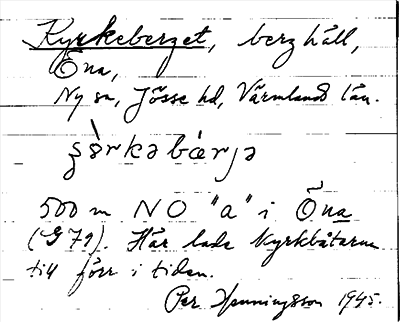 Kyrkeberget, berghäll,
Öna,
Ny sn, Jösse hd, Värmlands län.
şə̀rkəbàrjə
500 m NO "a" i Öna
(G 79). Här lade kyrkbåtarna
till förr i tiden.
Per Henningsson 1945.